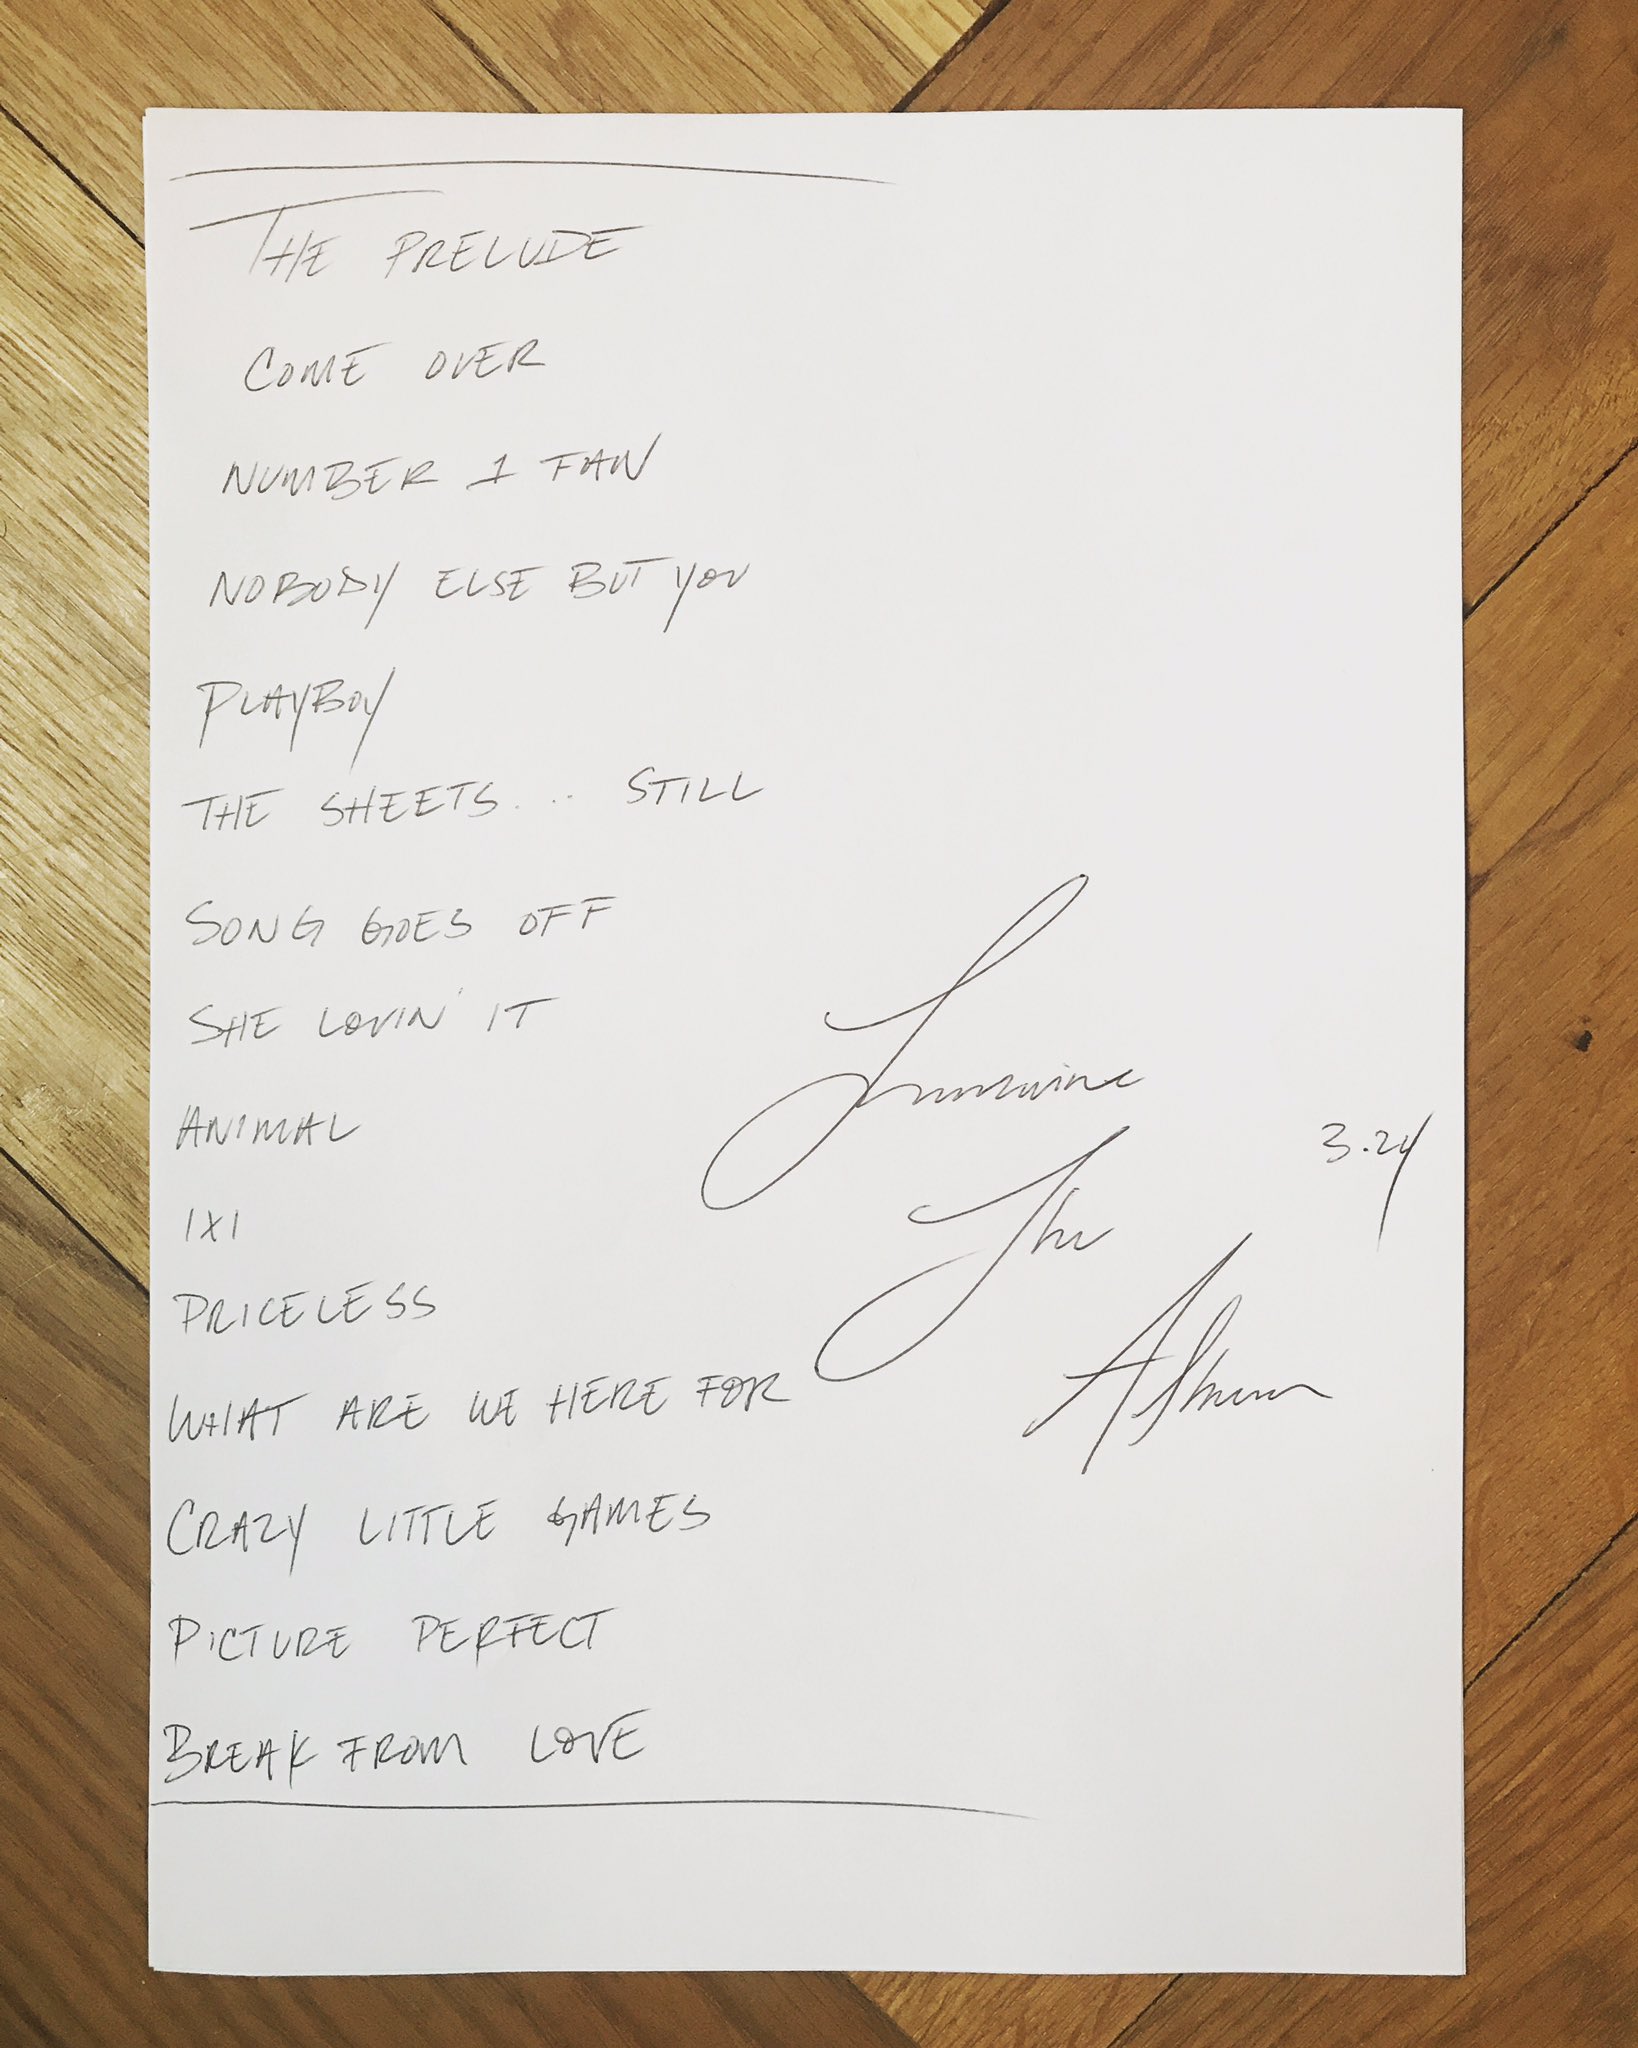 THE PRELUDE
COME OVER
NUMBER 1 FAN
NOBODY ELSE BUT YOU
PLAYBOY
THE SHEETS... STILL
SONG GOES OFF
SHE LOVIN' IT
ANIMAL
1X1
PRICELESS
WHAT ARE WE HERE FOR
CRAZY LITTLE GAMES
PICTURE PERFECT
BREAK FROM LOVE
Tremaine
The
Album
3.24